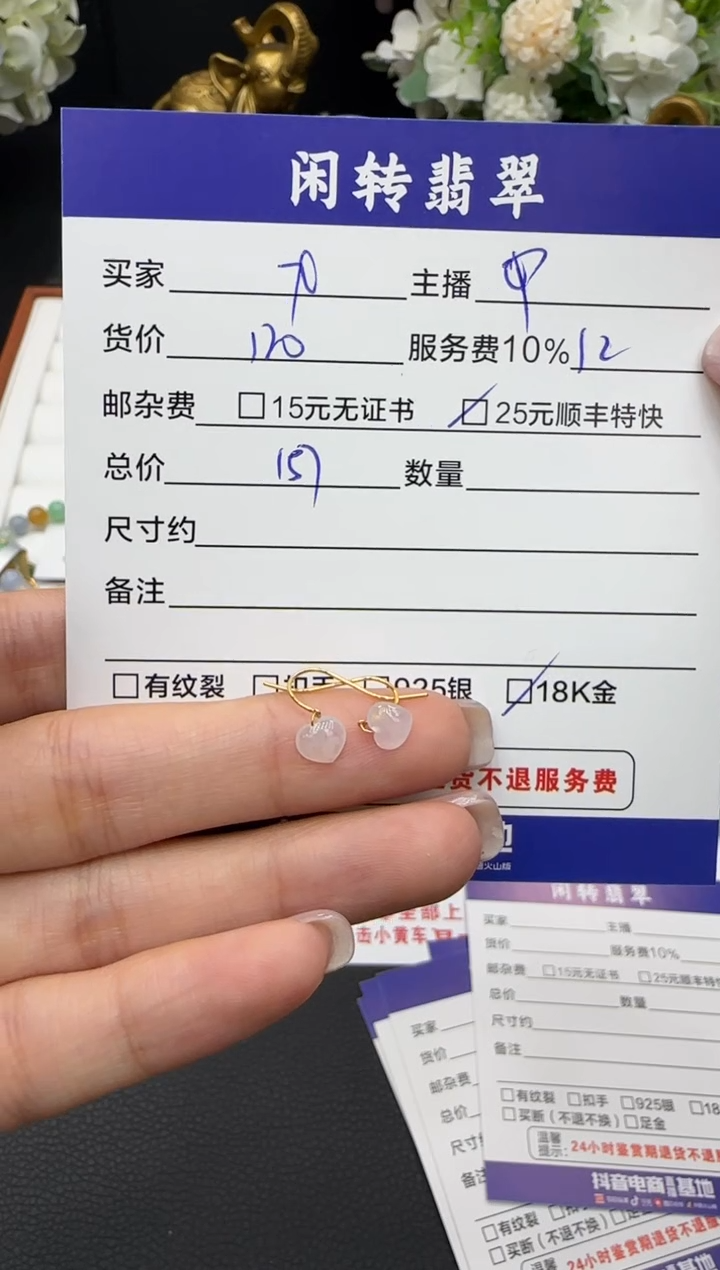 闲转翡翠
买家 主播
货价 120 服务费10% 12
邮杂费 □15元无证书 □25元顺丰特快
总价 157 数量
尺寸约
备注
□有纹裂 □925银 □18K金
货不退服务费
地
闲转翡翠
买家 主播
货价 服务费10%
邮杂费 □15元无证书 □25元顺丰特快
总价 数量
尺寸约
备注
□有纹裂 □扣手 □925银 □18
□买断(不退不换) □足金
温馨提示: 24小时鉴赏期退货不退
抖音电商直播基地
全部上
击小黄车
买家
货价
邮杂费
总价
尺寸
备注
□有纹裂
□买断(不退不换)
温馨 24小时鉴赏期退货不退服